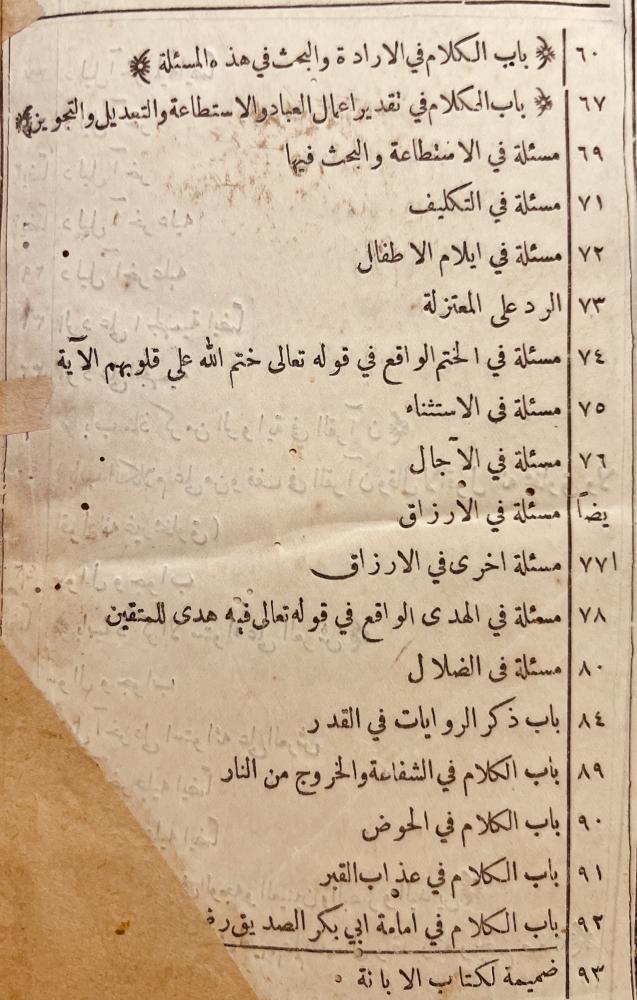 ٦٠ ﴿ باب الكلام في الارادة والبحث في هذه المسئلة ﴾
٦٧ ﴿ باب الكلام في تقدير اعمال العباد والاستطاعة والتعديل والتجويز ﴾
٦٩ مسئلة في الاستطاعة والبحث فيها
٧١ مسئلة في التكليف
٧٢ مسئلة في ايلام الاطفال
٧٣ الرد على المعتزلة
٧٤ مسئلة في الختم الواقع في قوله تعالى ختم الله علي قلوبهم الآية
٧٥ مسئلة في الاستثناء
٧٦ مسئلة في الآجال
يضاً مسئلة في الارزاق
٧٧ مسئلة اخرى في الارزاق
٧٨ مسئلة في الهدى الواقع في قوله تعالى فيه هدى للمتقين
٨٠ مسئلة في الضلال
٨٤ باب ذكر الروايات في القدر
٨٩ باب الكلام في الشفاعة والخروج من النار
٩٠ باب الكلام في الحوض
٩١ باب الكلام في عذاب القبر
٩٢ باب الكلام في امامة ابي بكر الصديق
٩٣ ضميمة لكتاب الابانة